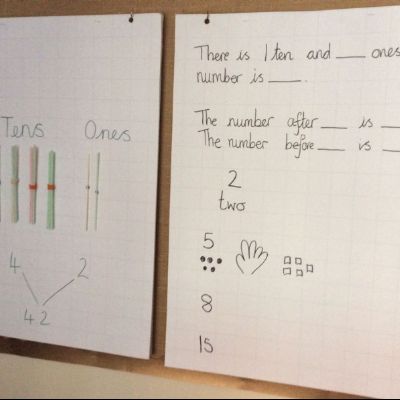 Tens Ones
4 2
42
There is 1 ten and ___ ones
number is ___.
The number after ___ is ___
The number before ___ is ___
2
two
5
8
15